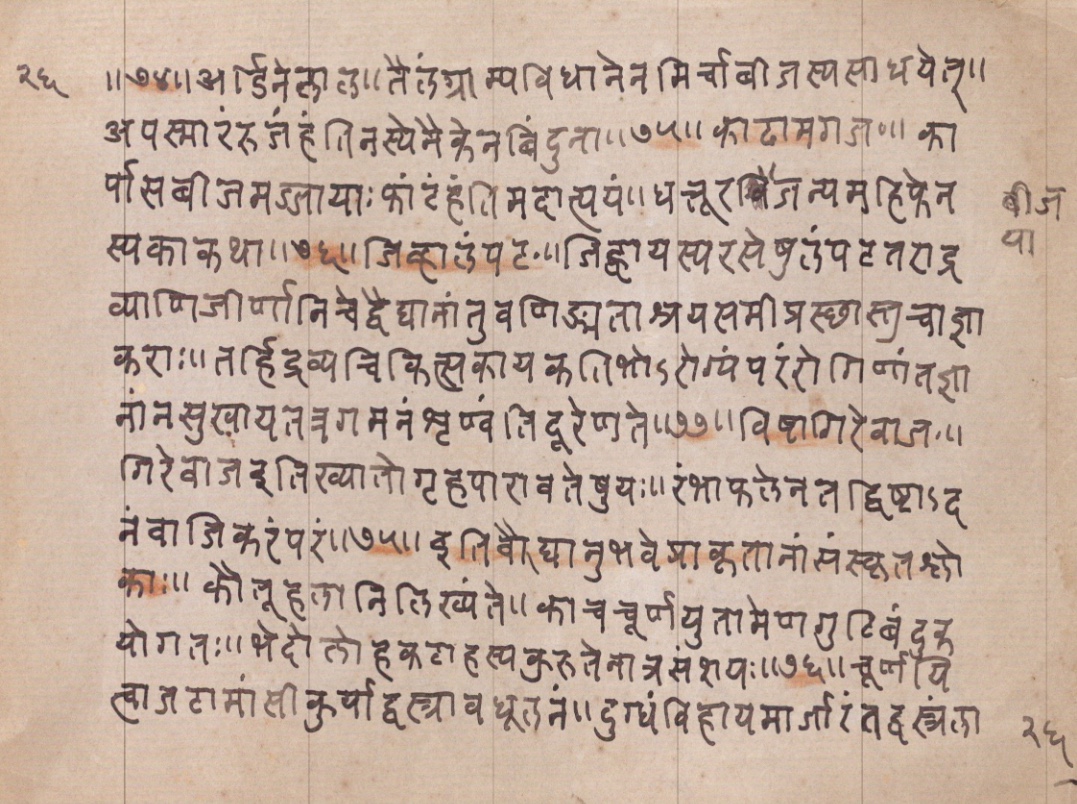 २६
॥७४॥अर्डिनेलाल॥तैलंग्राम्यविधानेनमिर्चाबीजस्यसाधयेत्॥
अपस्मारंरुजंहंतिनस्येनैकेनबिंदुना॥७५॥काटामगज॰॥का
र्पासबीजमज्जायाःफांटंहंतिमदात्ययं॥धत्तूर जन्यमहिफेन
बीज
या
स्यकाकथा॥७६॥जिव्हालंपटः॥जिह्वायस्यरसेषुलंपटतराद्र
व्याणिजीर्णानिचेद्वैद्यानांतुवणिङ्मताश्रयसमीपस्छास्तुचाज्ञा
कराः॥तर्हिद्रव्यचिकित्सकायकतिभोऽरोग्यंपरंरोगिणांतज्ञा
नांनसुखायतत्रगमनंशृण्वंतिदूरेणते॥७७॥विष्टागिरेवाजः॥
गिरेवाजइतिख्यातोगृहपारावतेषुयः॥रंभाफलेनतद्विष्टाऽद
नंवाजिकरंपरं॥७५॥इतिवैद्यानुभवेप्राकृतानांसंस्कृतश्लो
काः॥कौतूहलानिलिख्यंते॥काचचूर्णयुतामेणगुटिबंदुक
योगतः॥भेदोलोहकटाहस्यकुरुतेनात्रसंशयः॥७६॥चूर्णयि
त्वाजटामांसीकुर्याद्वस्त्रावधूलनं॥दुग्धंविहायमार्जारंतद्वस्त्रंला
२६